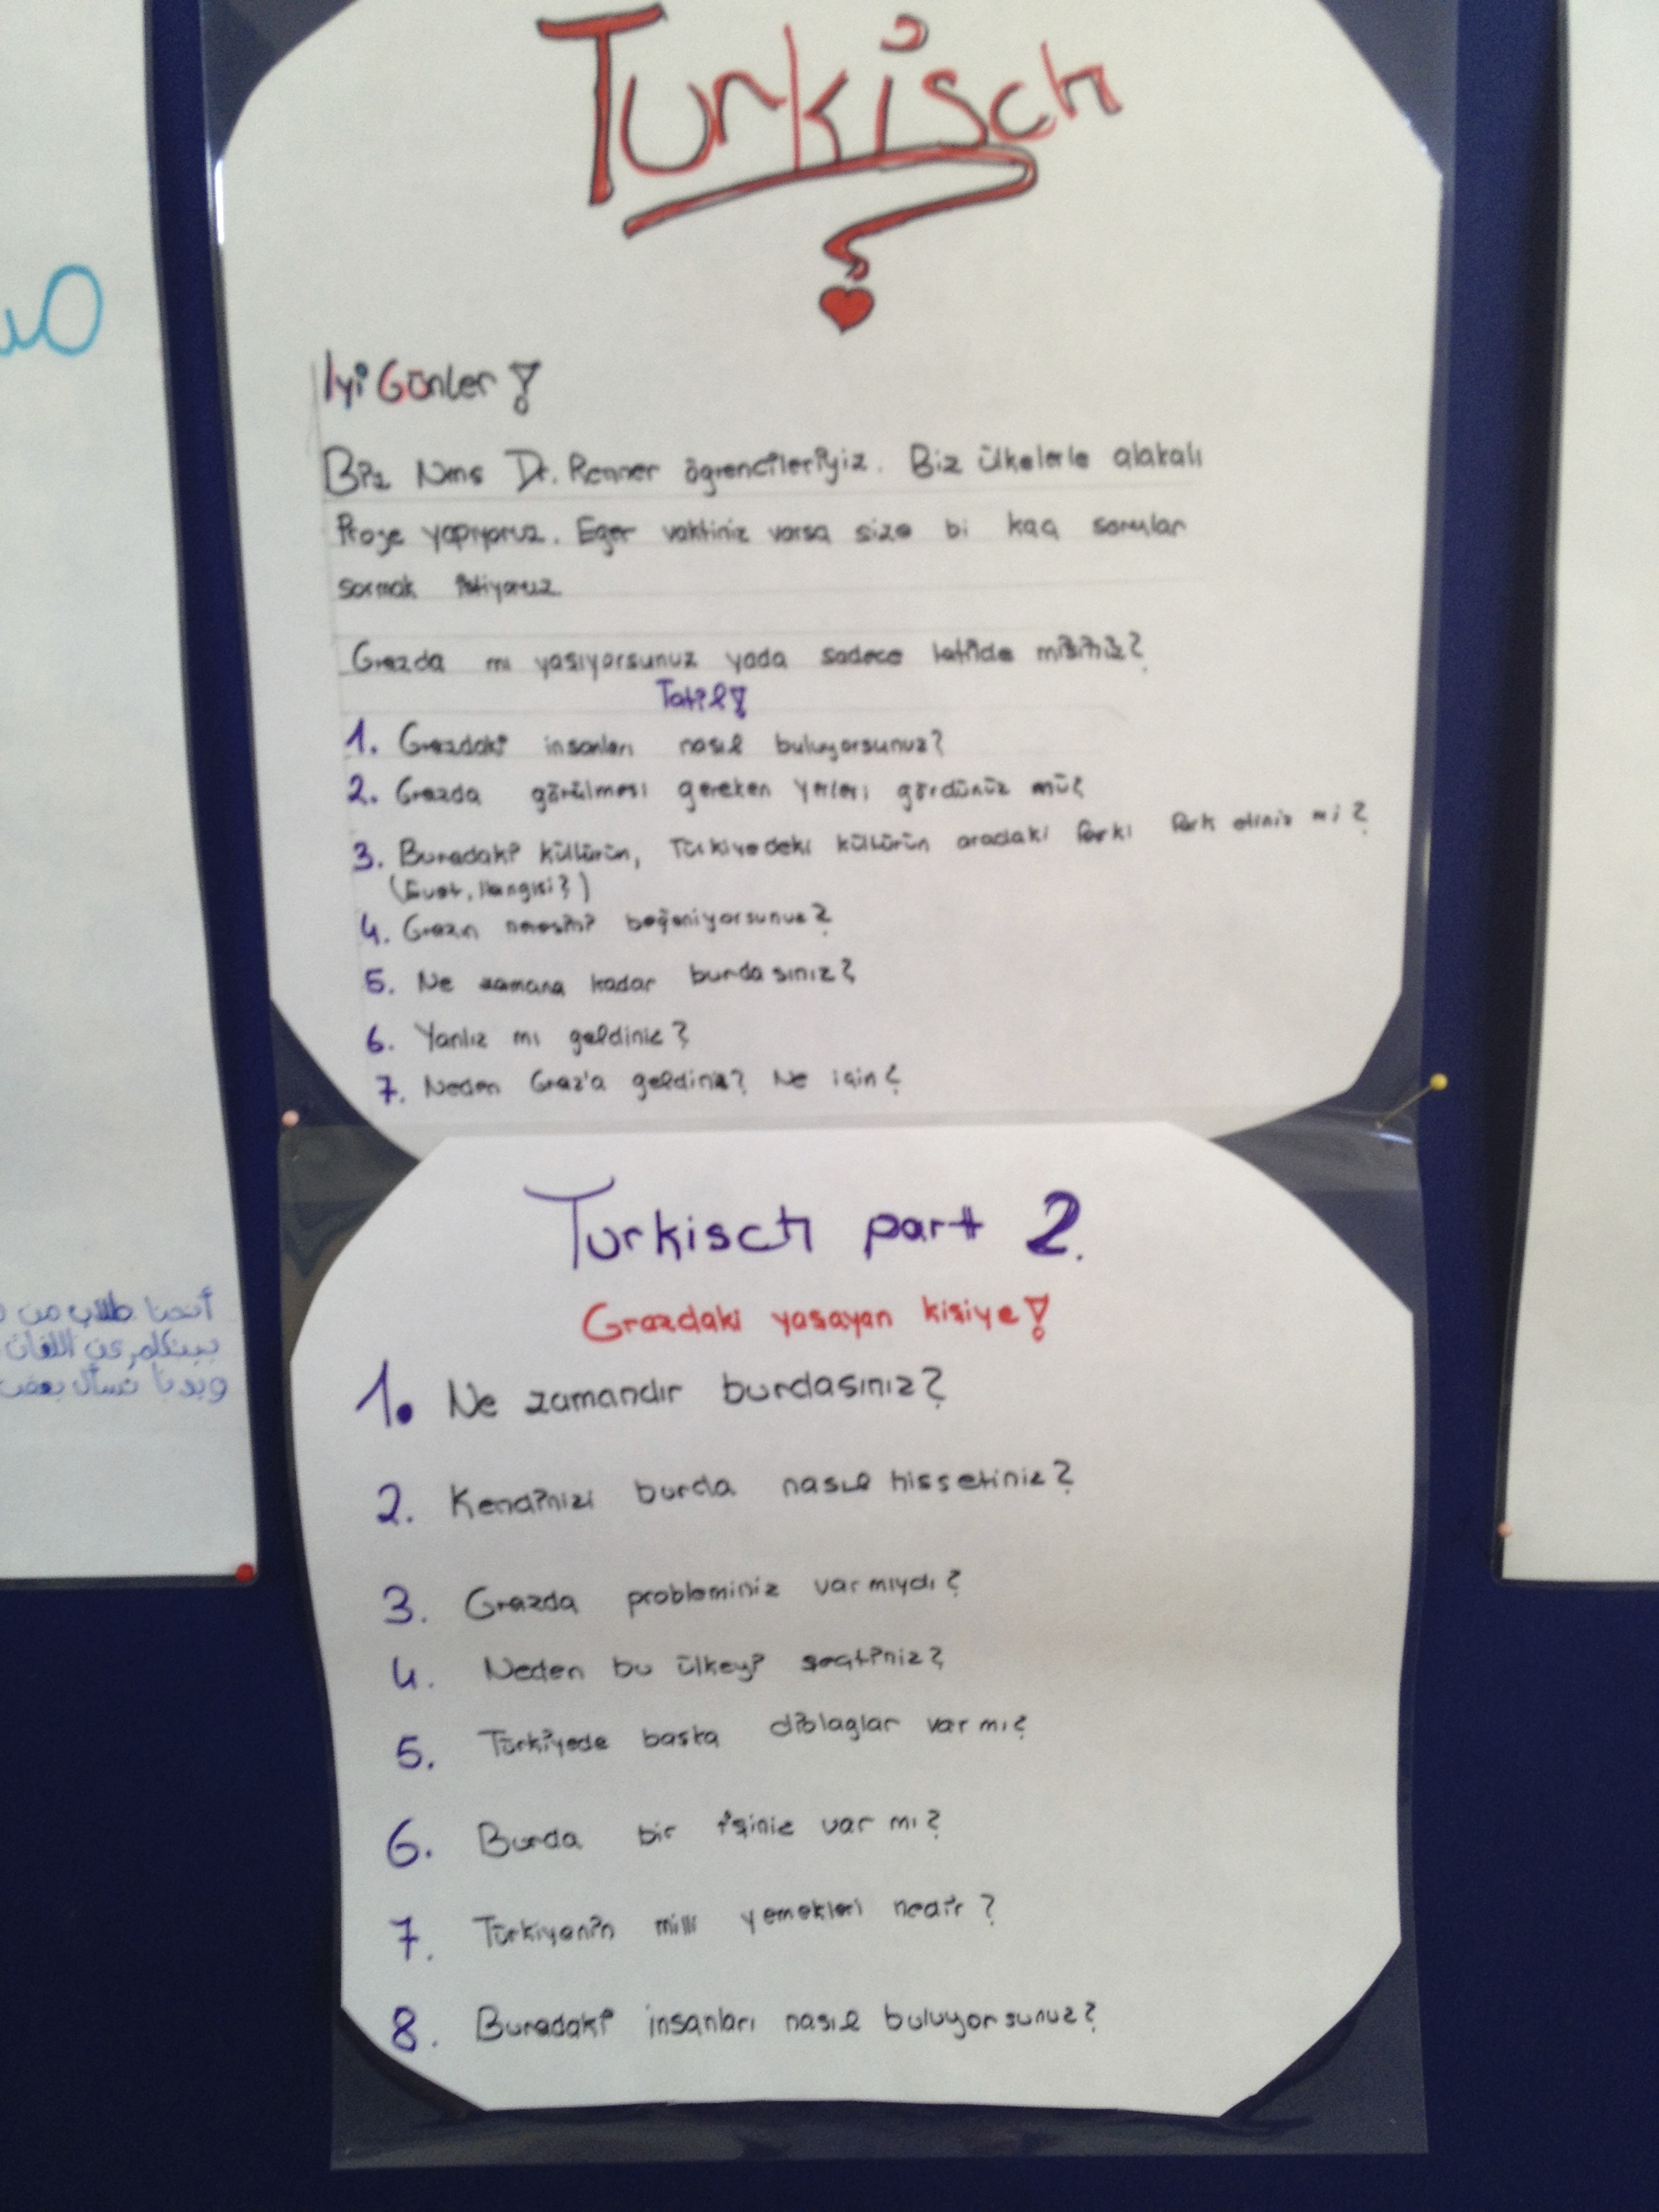 Turkisch
İyi Günler!
Biz Nms Dr. Renner ögrencileriyiz. Biz ülkelerle alakalı
Proje yapıyoruz. Eger vaktiniz varsa size bi kaç sorular
sormak istiyoruz
Grazda mı yasıyorsunuz yada sadece tatilde misiniz?
Tatil!
1. Grazdaki insanları nasıl buluyorsunuz?
2. Grazda görülmesi gereken yerleri gördünüz mü?
3. Buradaki kültürün, Türkiyedeki kültürün aradaki farkı fark etiniz mi?
(Evet, Hangisi?)
4. Grazın neresini beğeniyorsunuz?
5. Ne zamana kadar burdasınız?
6. Yanlız mı geldiniz?
7. Neden Graz'a geldiniz? Ne için?
Turkisch part 2.
Grazdaki yaşayan kişiye!
1. Ne zamandır burdasınız?
2. Kendinizi burda nasıl hissetiniz?
3. Grazda probleminiz varmıydı?
4. Neden bu ülkeyi seçtiniz?
5. Türkiyede baska var mı?
6. Burda bir işiniz var mı?
7. Türkiyenin milli yemekleri nedir?
8. Buradaki insanları nasıl buluyorsunuz?
أنحنا طلاب من
بيتكلم عن اللغات
وبدنا نسأل بعض